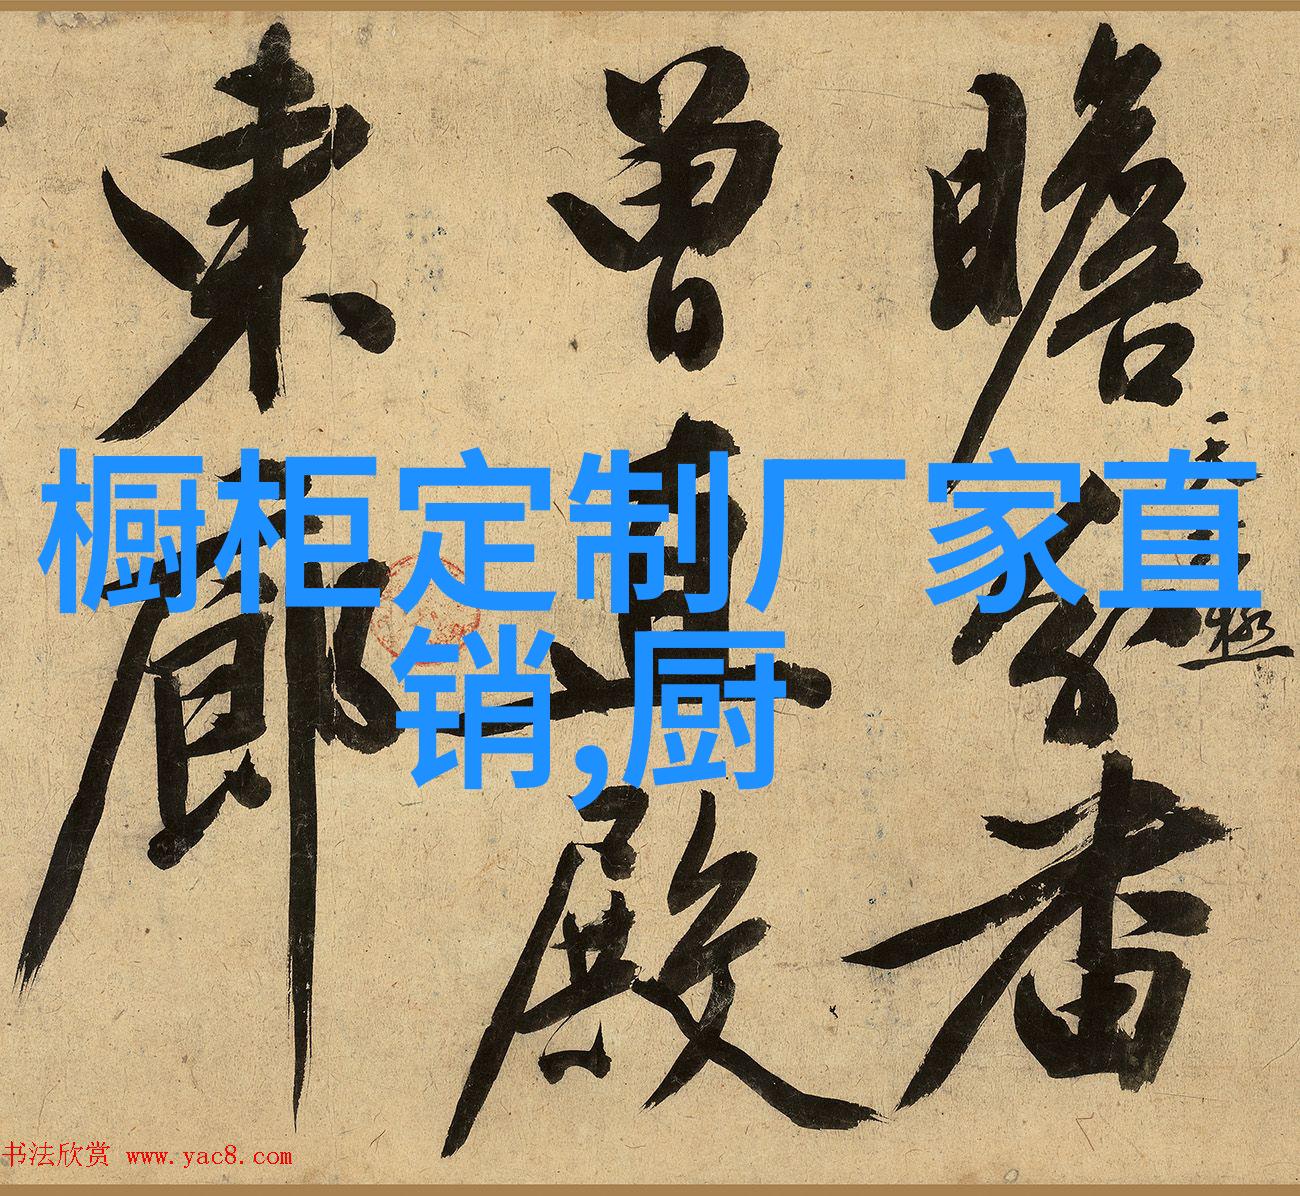 瞻
曾直殿
東廊
橱柜定制厂家直
销,厨
书法欣赏 www.yac8.com